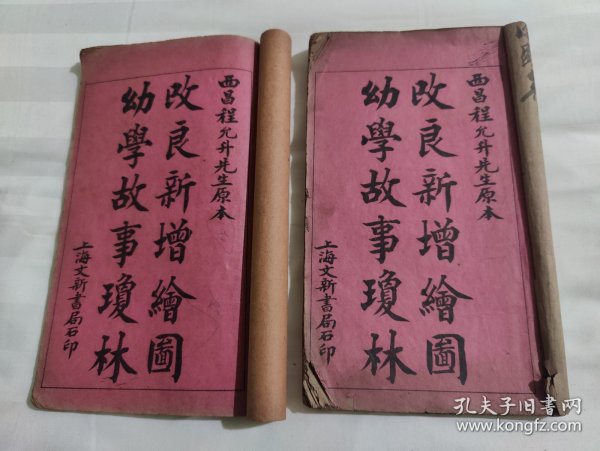 西昌程允升先生原本
改良新增繪圖
幼學故事瓊林
上海文新書局石印
西昌程允升先生原本
改良新增繪圖
幼學故事瓊林
上海文新書局石印
孔夫子旧书网
www.kongfz.com